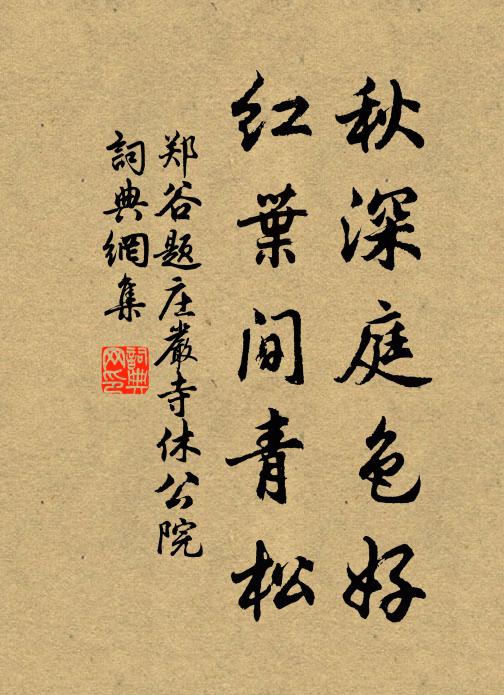 秋深庭色好
红葉间青松
郑谷题庄嚴寺休公院
詞典網集
詞典网印